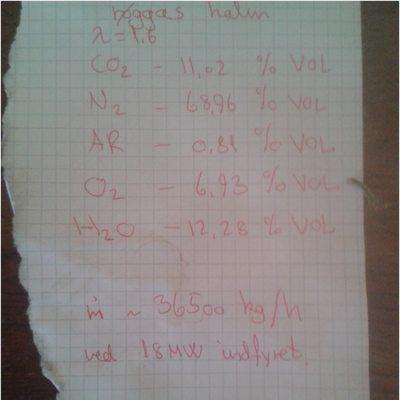 røggas halm
λ = 1,6
CO2 - 11,02 % VOL
N2 - 68,96 % VOL
AR - 0,81 % VOL
O2 - 6,93 % VOL
H2O - 12,28 % VOL
ṁ ~ 36500 kg/h
ved 18 MW indfyret.